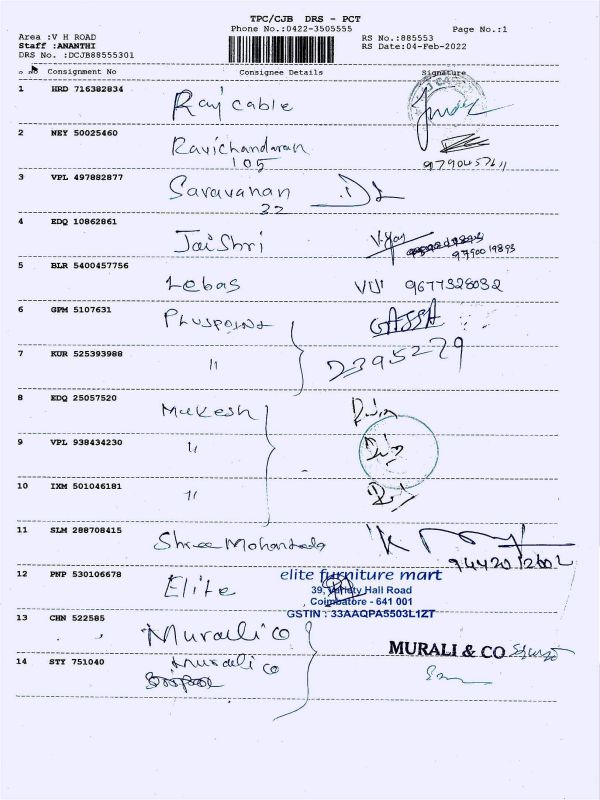 TPC/CJB DRS - PCT
Phone No.:0422-3505555 Page No.:1
Area :V H ROAD RS No.:885553
Staff :ANANTHI RS Date:04-Feb-2022
DRS No. :DCJB88555301
Consignment No Consignee Details Signature
1 HRD 716382834 Raj cable
2 NEY 50025460 Ravichandaran
105
3 VPL 497882877 Saravanan
22
4 EDQ 10862861 Jai Shri
9790019893
5 BLR 5400457756 Lebas VIJI 9677328032
6 GPM 5107631 PLUSPOINT
7 KUR 525393988 " 2395279
8 EDQ 25057520 Mukesh
9 VPL 938434230 "
10 IXM 501046181 "
11 SLM 288708415 Shree
12 PNP 530106678 Elite
elite furniture mart
39, Variety Hall Road
Coimbatore - 641 001
GSTIN : 33AAQPA5503L1ZT
13 CHN 522585 Murali co
MURALI & CO
14 STY 751040 Murali co